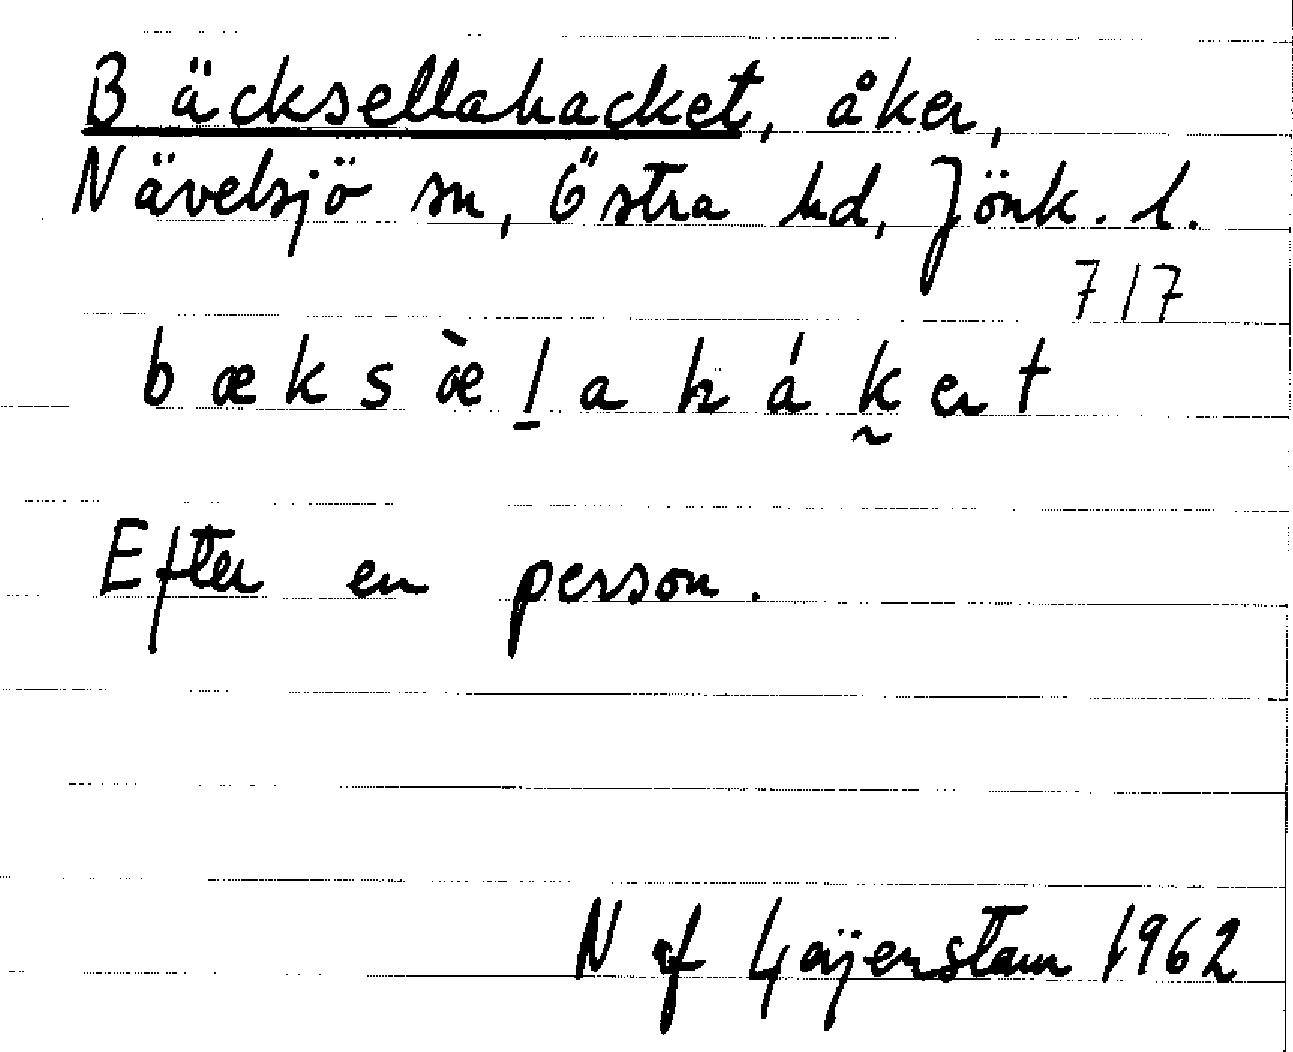 Bäcksellahacket, åker,
Nävelsjö sn, Östra hd, Jönk. l.
717
bæksæ̀l̠ahák̰ et
Efter en person.
N af Geijerstam 1962